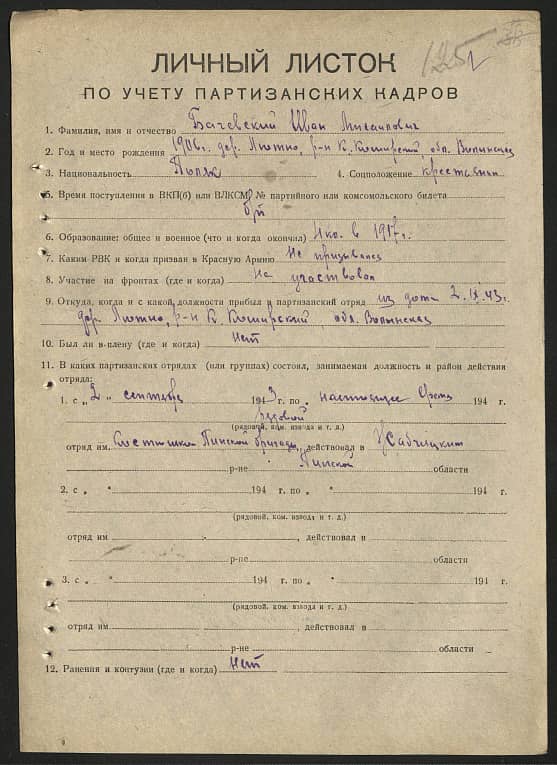 1251
ЛИЧНЫЙ ЛИСТОК
ПО УЧЕТУ ПАРТИЗАНСКИХ КАДРОВ
1. Фамилия, имя и отчество Бачевский Иван Михайлович
2. Год и место рождения 1906г. дер. Лютно, р-н К. Коширский, обл. Волынская
3. Национальность Поляк 4. Соцположение крестьянин
5. Время поступления в ВКП(б) или ВЛКСМ, № партийного или комсомольского билета
б/п
6. Образование: общее и военное (что и когда окончил) 4 кл. в 1917г.
7. Каким РВК и когда призван в Красную Армию Не призывался
8. Участие на фронтах (где и когда) Не участвовал
9. Откуда, когда и с какой должности прибыл в партизанский отряд из дома 2.IX.43г.
дер. Лютно, р-н К. Коширский, обл. Волынская
10. Был ли в плену (где и когда) нет
11. В каких партизанских отрядах (или группах) состоял, занимаемая должность и район действия
отряда:
1. с „2„ сентября 1943 г. по „ настоящее время 194 г.
рядовой
(рядовой, ком. взвода и т. д.)
отряд им. Костюшко Пинской бригады, действовал в
р-не Пинской области
2. с „ „ 194 г. по „ „ 194 г.
(рядовой, ком. взвода и т. д.)
отряд им , действовал в
р-не области
3. с „ „ 194 г. по „ „ 194 г.
(рядовой, ком. взвода и т. д.)
отряд им , действовал в
р-не области
12. Ранения и контузии (где и когда) Нет